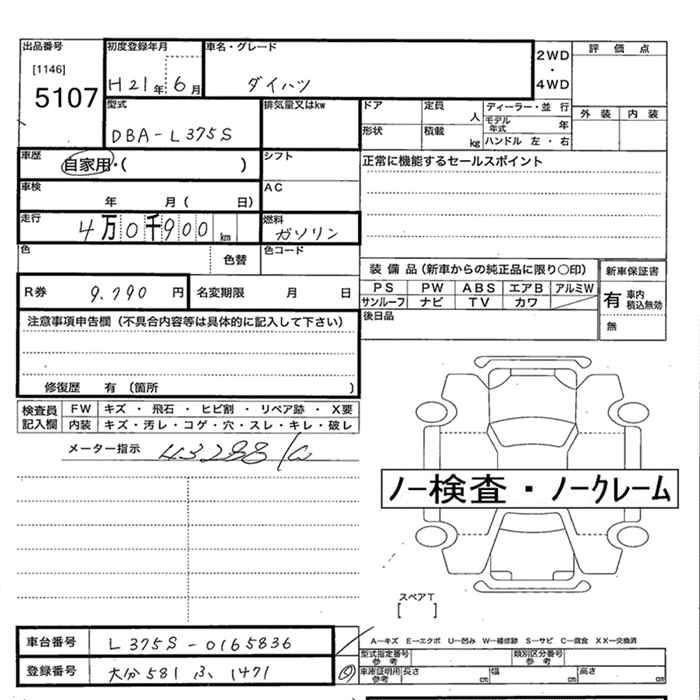 出品番号
[1146]
5107
初度登録年月
H21年 6月
車名・グレード
ダイハツ
2WD
・
4WD
評価点
外装 内装
型式
DBA-L375S
排気量又はkw
ドア
定員 人
形状
積載 kg
ディーラー・並行
モデル年式 年
ハンドル 左・右
車歴
自家用・( )
シフト
正常に機能するセールスポイント
車検
年 月( 日)
AC
走行
4万0千900 km
燃料
ガソリン
色
色替
色コード
装備品(新車からの純正品に限り〇印)
新車保証書
PS PW ABS エアB アルミW
サンルーフ ナビ TV カワ
有 車内積込無効
無
後日品
R券 9.790 円
名変期限 月 日
注意事項申告欄(不具合内容等は具体的に記入して下さい)
修復歴 有(箇所 )
検査員記入欄
FW キズ・飛石・ヒビ割・リペア跡・X要
内装 キズ・汚レ・コゲ・穴・スレ・キレ・破レ
メーター指示 43288
ノー検査・ノークレーム
スペアT
[ ]
車台番号 L375S-0165836
登録番号 大分581 ふ 1471
A―キズ E―エクボ U―凹み W―補修跡 S―サビ C―腐食 XX―交換済
型式指定番号 参考
類別区分番号 参考
車庫証明用 参考 長さ cm 幅 cm 高さ cm